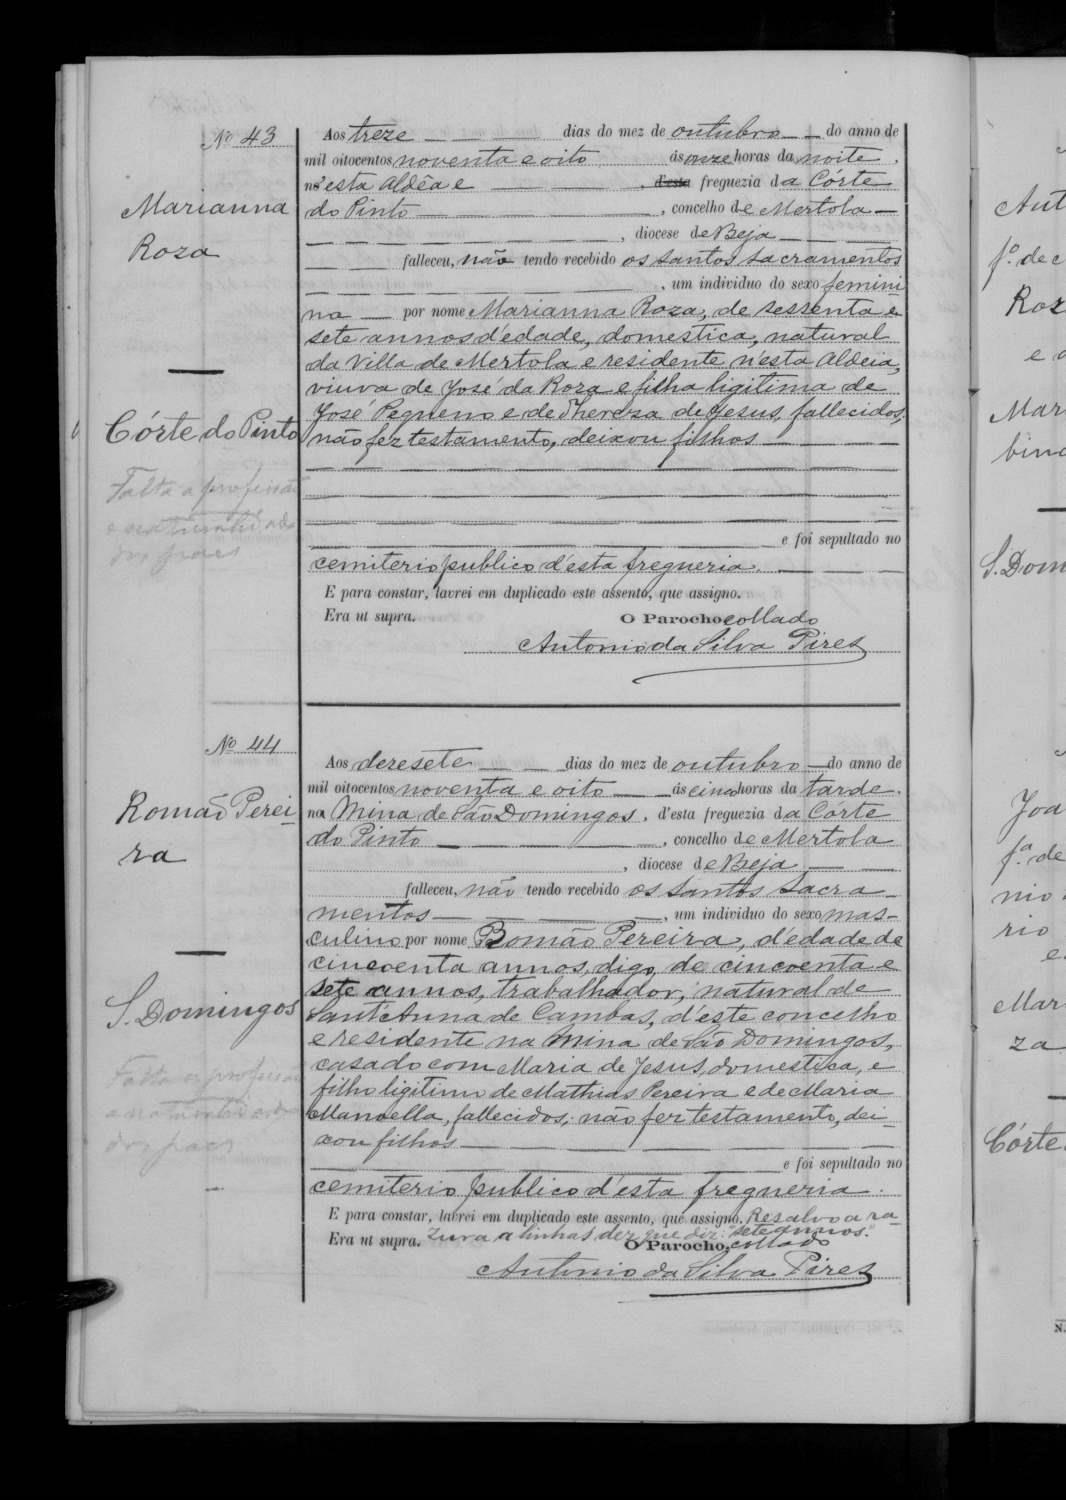 Nº 43
Marianna
Roza
Córte do Pinto
Falta a profissão
e naturalidade
dos paes
Aos treze dias do mez de outubro do anno de
mil oitocentos noventa e oito ás onze horas da noite,
n'esta Aldêa e, d'esta freguezia da Córte
do Pinto, concelho de Mertola
, diocese de Beja
falleceu, não tendo recebido os santos sacramentos
, um individuo do sexo femini
no por nome Marianna Roza, de sessenta e
sete annos d'edade, domestica, natural
da Villa de Mertola e residente n'esta Aldeia,
viuva de José da Roza e filha ligitima de
José Pequeno e de Thereza de Jesus, fallecidos,
não fez testamento, deixou filhos
e foi sepultado no
cemiterio publico d'esta freguezia.
E para constar, lavrei em duplicado este assento, que assigno.
Era ut supra. O Parocho collado
Antonio da Silva Pires
Nº 44
Romão Perei-
ra
S. Domingos
Falta a profissão
e a naturalidade
dos paes
Aos dezesete dias do mez de outubro do anno de
mil oitocentos noventa e oito ás cinco horas da tarde,
na Mina de São Domingos, d'esta freguezia da Córte
do Pinto, concelho de Mertola
, diocese de Beja
falleceu, não tendo recebido os santos sacra-
mentos, um individuo do sexo mas-
culino por nome Romão Pereira, d'edade de
cincoenta annos, digo, de cincoenta e
sete annos, trabalhador, natural de
Sant'Anna de Cambas, d'este concelho
e residente na Mina de São Domingos,
casado com Maria de Jesus, domestica, e
filho ligitimo de Mathias Pereira e de Maria
Manoella, fallecidos; não fez testamento, dei-
xou filhos
e foi sepultado no
cemiterio publico d'esta freguezia.
E para constar, lavrei em duplicado este assento, que assigno. Resalvo a ra-
Era ut supra. zura a linhas dez que diz: "sete annos."
O Parocho, collado
Antonio da Silva Pires
Ant
f.º de c
Roz
e a
Mar
bino
S. Dom
Joa
f.ª de
nio
rio
e
Mar
za
Córte
N.